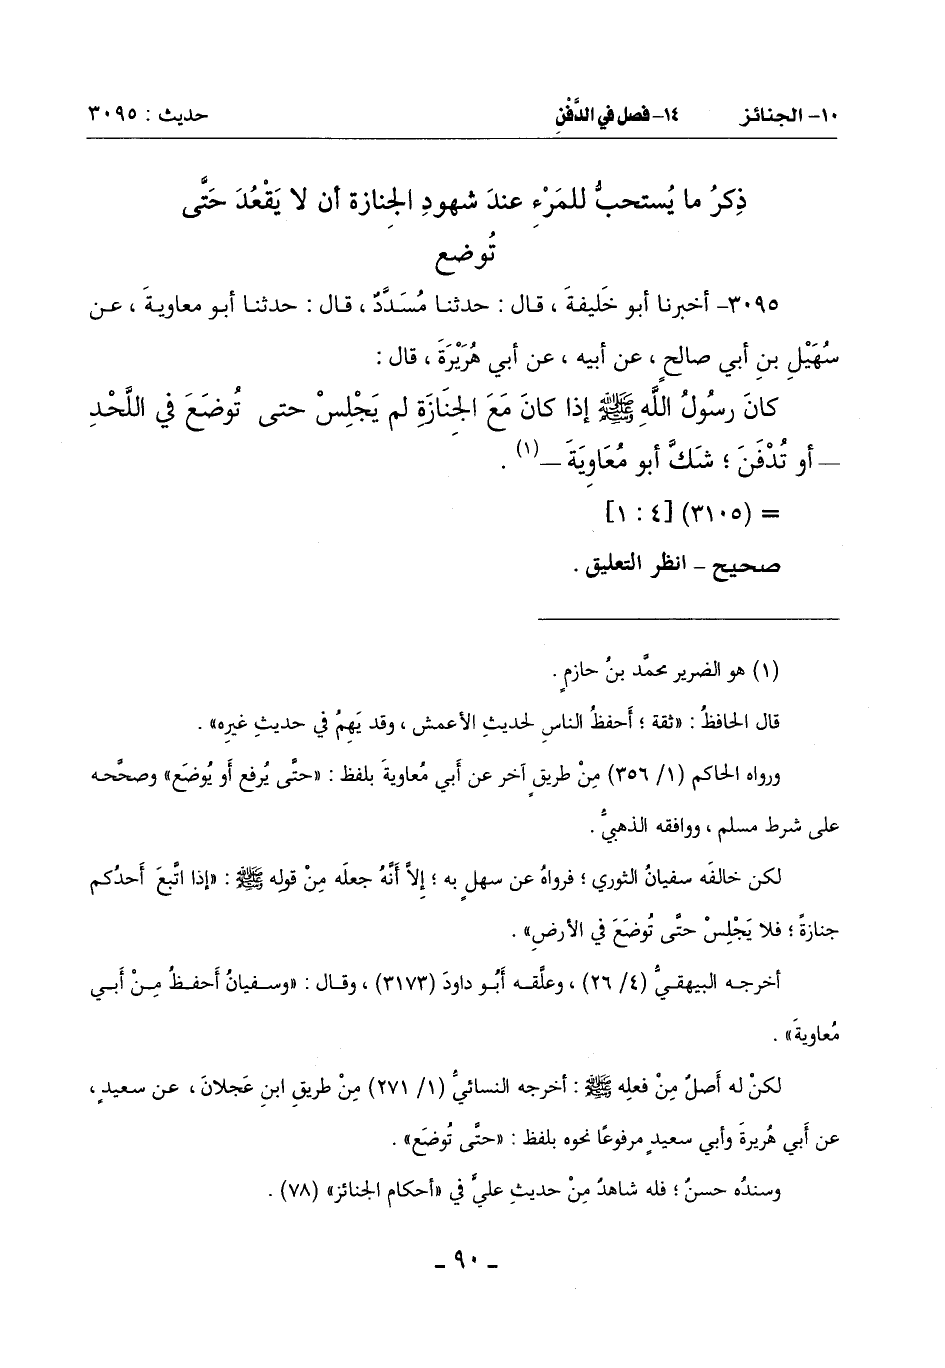 ١٠- الجنائز ١٤- فصل في الدَّفْنِ حديث : ٣٠٩٥
ذِكرُ ما يُستحبُّ للمَرْءِ عندَ شهودِ الجِنازة أن لا يَقْعُدَ حَتَّى
تُوضع
٣٠٩٥- أخبرنا أبو خَليفةَ ، قال : حدثنا مُسَدَّدٌ ، قال : حدثنا أبو معاويةَ ، عن
سُهَيْلِ بنِ أبي صالحٍ ، عن أبيه ، عن أبي هُرَيْرَةَ ، قال :
كانَ رسُولُ اللَّهِ ﷺ إذا كانَ مَعَ الجِنَازَةِ لم يَجْلِسْ حتى تُوضَعَ في اللَّحْدِ
– أو تُدْفَنَ ؛ شَكَّ أبو مُعَاوِيَةَ –(١) .
= (٣١٠٥) [٤ : ١]
صحيح – انظر التعليق .
(١) هو الضرير محمَّد بنُ حازمٍ .
قال الحافظُ : «ثقة ؛ أحفظُ الناسِ لحديثِ الأعمش ، وقد يَهِمُ في حديثِ غيرِه» .
ورواه الحاكم (١/ ٣٥٦) مِنْ طريقٍ آخر عن أبي مُعاويةَ بلفظ : «حتَّى يُرفع أو يُوضَع» وصحَّحه
على شرط مسلم ، ووافقه الذهبيُّ .
لكن خالفَه سفيانُ الثوري ؛ فرواهُ عن سهلٍ به ؛ إلاَّ أَنَّهُ جعلَه مِنْ قوله ﷺ : «إذا اتَّبعَ أحدُكم
جنازةً ؛ فلا يَجْلِسْ حتَّى تُوضَعَ في الأرضِ» .
أخرجه البيهقيُّ (٤/ ٢٦) ، وعلَّقه أَبُو داودَ (٣١٧٣) ، وقال : «وسفيانُ أحفظُ مِنْ أبي
مُعاويةَ» .
لكنْ له أَصلٌ مِنْ فعلِه ﷺ : أخرجه النسائيُّ (١/ ٢٧١) مِنْ طريقِ ابنِ عَجلانَ ، عن سعيدٍ ،
عن أَبي هُريرةَ وأَبي سعيدٍ مرفوعًا نحوه بلفظ : «حتَّى تُوضَع» .
وسندُه حسنٌ ؛ فله شاهدٌ مِنْ حديثِ عليٍّ في «أحكام الجنائز» (٧٨) .
- ٩٠ -